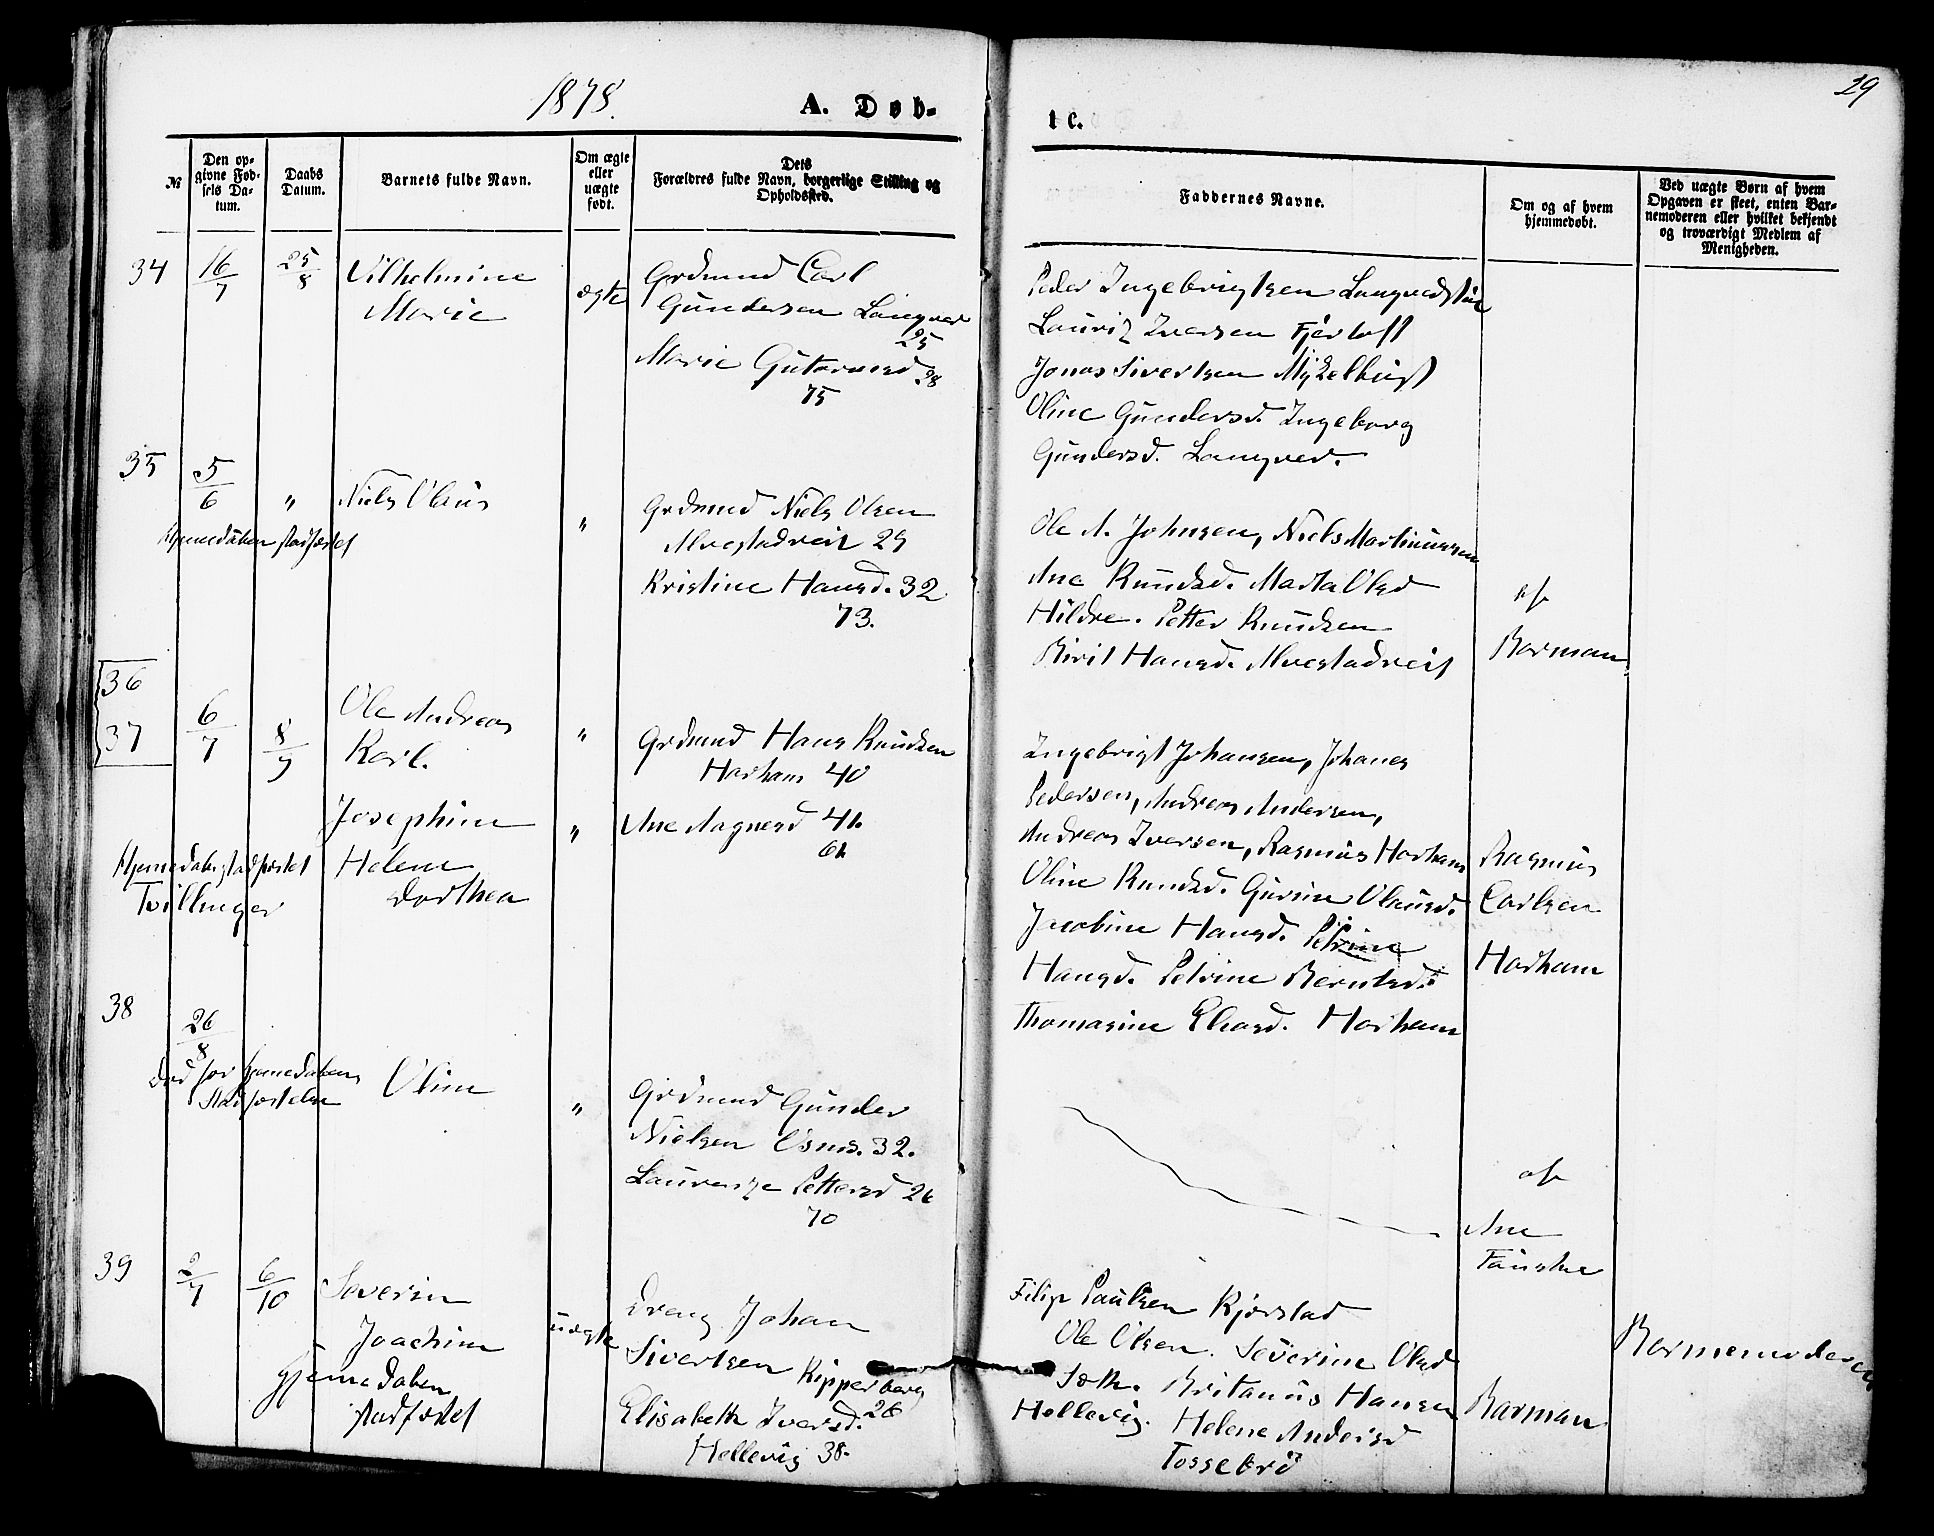 1878.
A. Døb-
te.
29
№
Den op-
givne Fød-
sels Da-
tum.
Daabs
Datum.
Barnets fulde Navn.
Om ægte
eller
uægte
født.
Dets
Forældres fulde Navn, borgerlige Stilling og
Opholdssted.
Faddernes Navne.
Om og af hvem
hjemmedøbt.
Ved uægte Børn af hvem
Opgaven er skeet, enten Bar-
nemoderen eller hvilket bekjendt
og troværdigt Medlem af
Menigheden.
34
16/7
25/8
Vilhelmine
Marie
ægte
Grdmand Carl
Gundersen Langver
25
Marie Gutormsd 28
75
Peder Ingebrigtsen
Lauritz Iversen Fjertoft
Jonas Sivertsen Myklebust
Oline Gundersd. Ingeborg
Gundersd. Langver.
35
5/6
"
Niels Olaus
Hjemedaaben stadfæstet
"
Grdmand Niels Olsen
Alvestadveit 29
Kristine Hansd. 32
73.
Ole A. Johnsen, Niels Martinussen
Ane Knudsd. Marta Olsd
Hildre. Petter Knudsen
Birit Hansd. Alvestadveit
af
Barman
36
37
6/7
8/9
Ole Andreas
Karl.
"
Grdmand Hans Knudsen
Harham 40
Josephine
Helene
Dorthea
"
Ane Aagnesd 41.
61
Hjemedaabstadfæstet
Tvillinger
Ingebrigt Johansen, Johanes
Pedersen, Andreas Andersen,
Andreas Iversen, Rasmus Harham
Oline Knudsd. Gurine Olausd.
Jacobine Hansd. Petrine
Hansd. Petrine Berntsd.
Thomasine Eliasd. Harham
Rasmus
Carlsen
Harham
38
26/8
Død før hjemedaabens
Stadfæstelse
Oline
"
Grdmand Gunder
Nielsen Osnes. 32.
Laurentze Pettersd 26
70
af
Ane
Fauske
39
2/7
6/10
Severin
Joachim
Hjemedaaben
stadfæstet
uægte
Dreng Johan
Sivertsen Kipperberg
26
Elisabeth Iversd.
Hellevig 38.
Filip Paulsen Kjerstad
Ole Olsen. Severine Olsd
Sæth. Britanus Hansen
Hellevig. Helene Andersd
Tossebrø
Barman
Barnemoderen